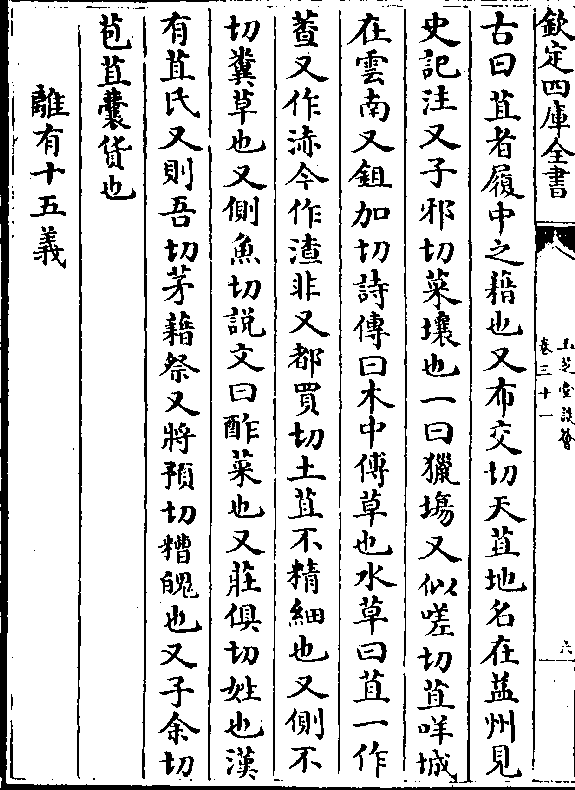 欽定四庫全書
玉芝堂談薈
卷三十一
六
古曰苴者履中之藉也又布交切天苴地名在益州見
史記注又子邪切菜壤也一曰獵塲又似嗟切苴咩城
在雲南又鉏加切詩傳曰木中傅草也水草曰苴一作
蒫又作渿今作渣非又都買切土苴不精細也又側不
切糞草也又側魚切說文曰酢菜也又莊俱切姓也漢
有苴氏又則吾切茅藉祭又將預切糟魄也又子余切
苞苴囊貨也
離有十五義